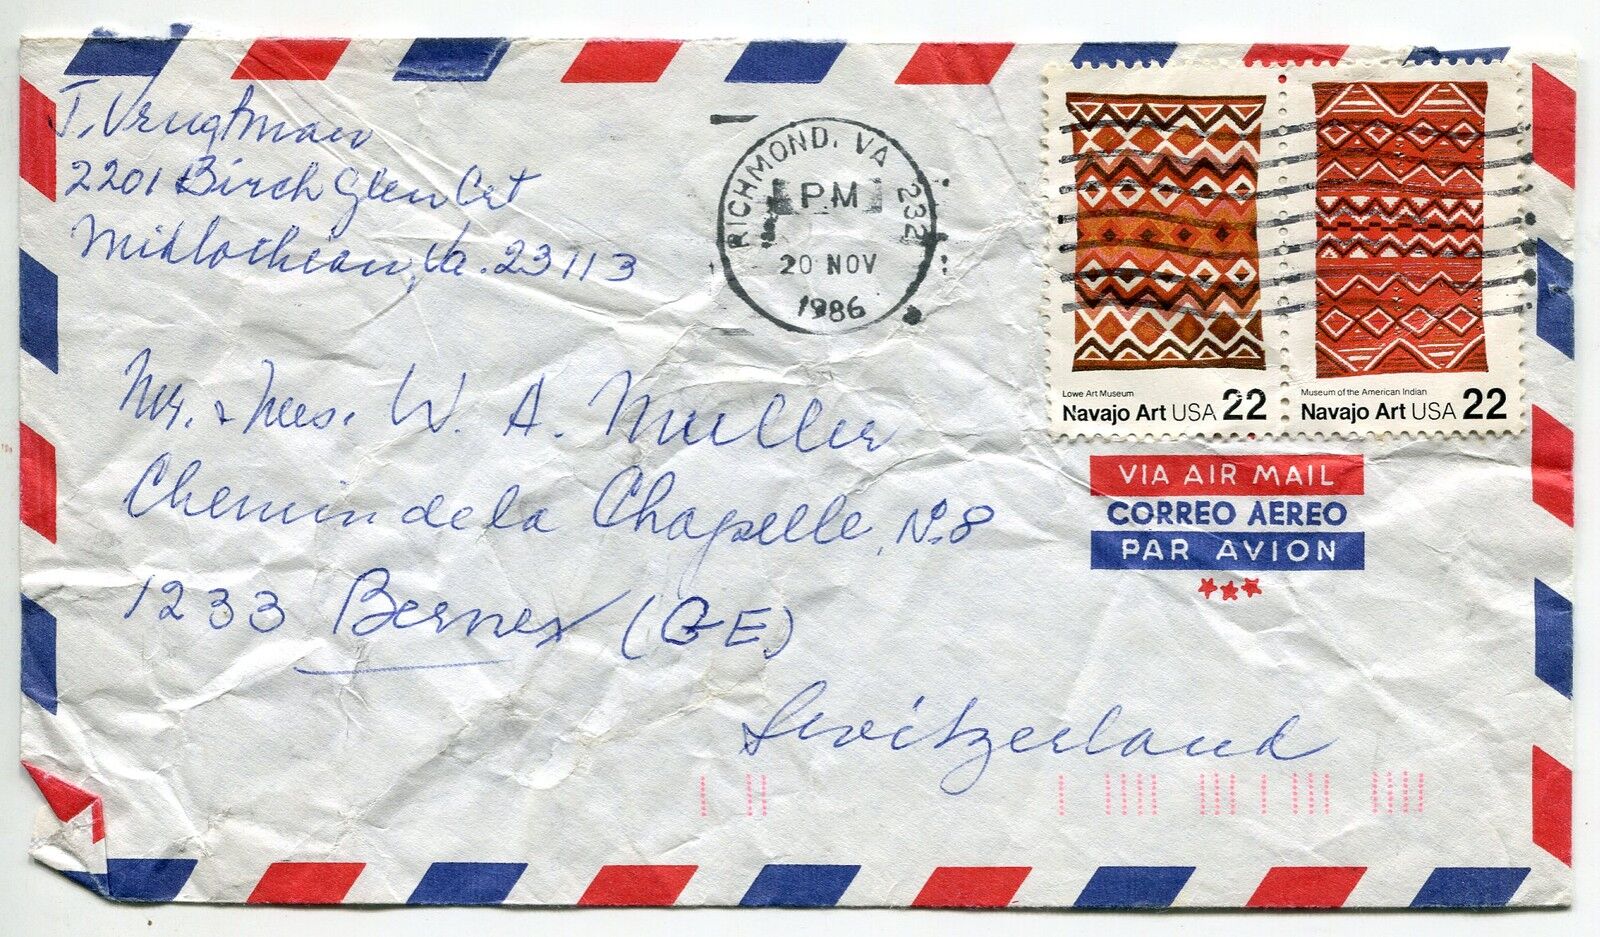 T. Vrugtman
2201 Birch Glen Crt
Midlothian, Va. 23113
RICHMOND, VA 232
PM
20 NOV
1986
Lowe Art Museum
Navajo Art USA 22
Museum of the American Indian
Navajo Art USA 22
Mr. & Mrs. W. A. Muller
Chemin de la Chapelle, No. 8
1233 Bernex (GE)
Switzerland
VIA AIR MAIL
CORREO AEREO
PAR AVION